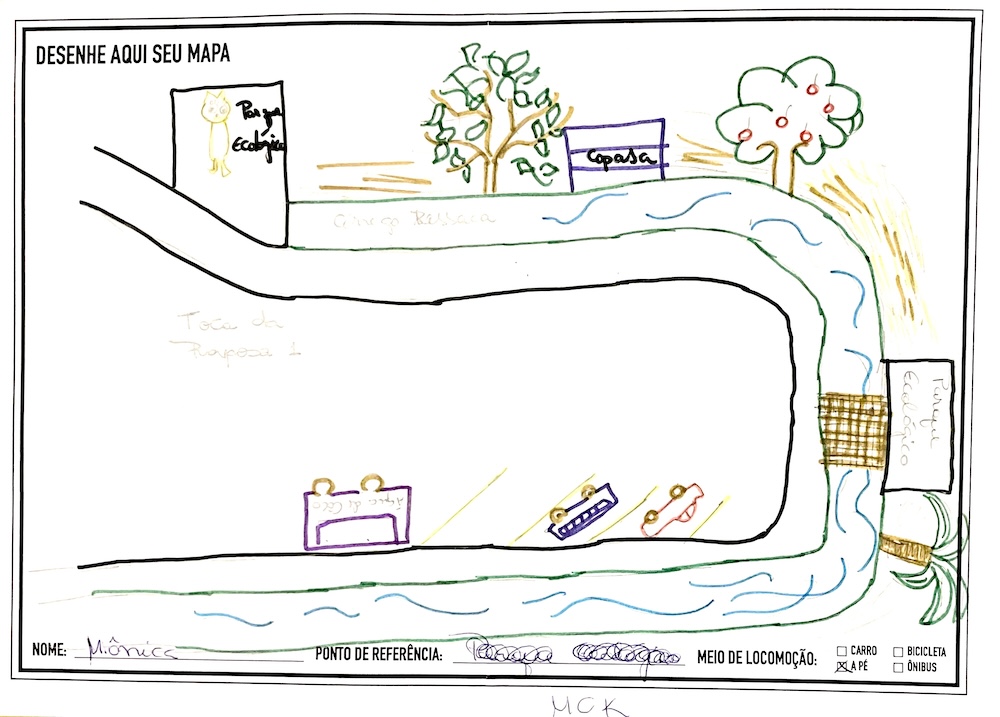 DESENHE AQUI SEU MAPA
Parque
Ecológico
Copasa
Córrego Ressaca
Toca da
Raposa 1
Parque
Ecológico
Água de Côco
NOME: Mônica
PONTO DE REFERÊNCIA:
MEIO DE LOCOMOÇÃO:
☐ CARRO
☒ A PÉ
☐ BICICLETA
☐ ÔNIBUS
MCK